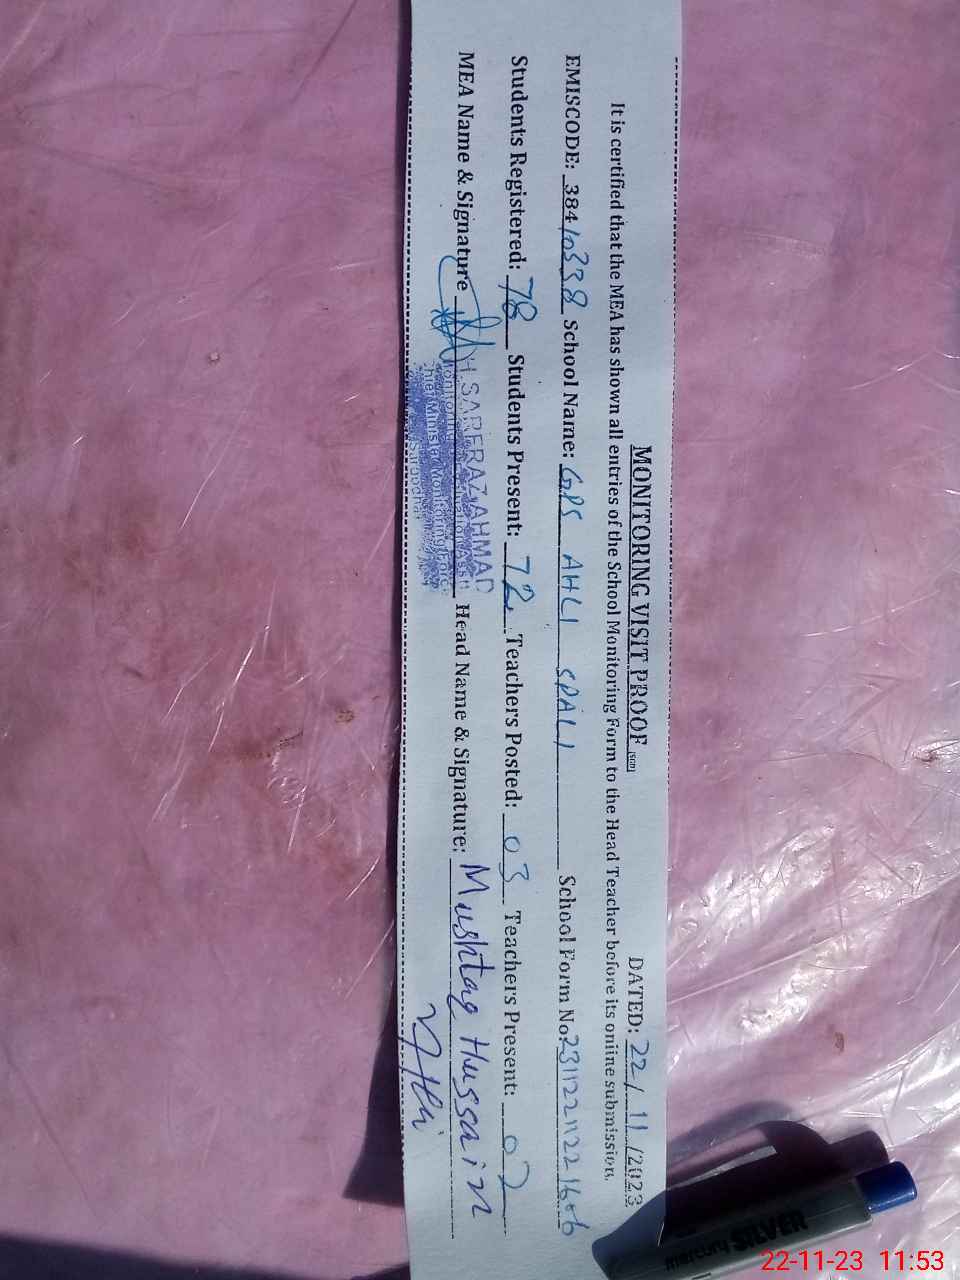 MONITORING VISIT PROOF DATED: 22/11/2023
It is certified that the MEA has shown all entries of the School Monitoring Form to the Head Teacher before its online submission.
EMISCODE: 38410338 School Name: GPS AHLI SPALI School Form No 23112211221606
Students Registered: 78 Students Present: 72 Teachers Posted: 03 Teachers Present: 02
MEA Name & Signature Head Name & Signature: Mushtaq Hussain
SARFRAZ AHMAD
Monitoring
Chief Minister Monitoring Force
Sargodha
mercury SILVER
22-11-23 11:53